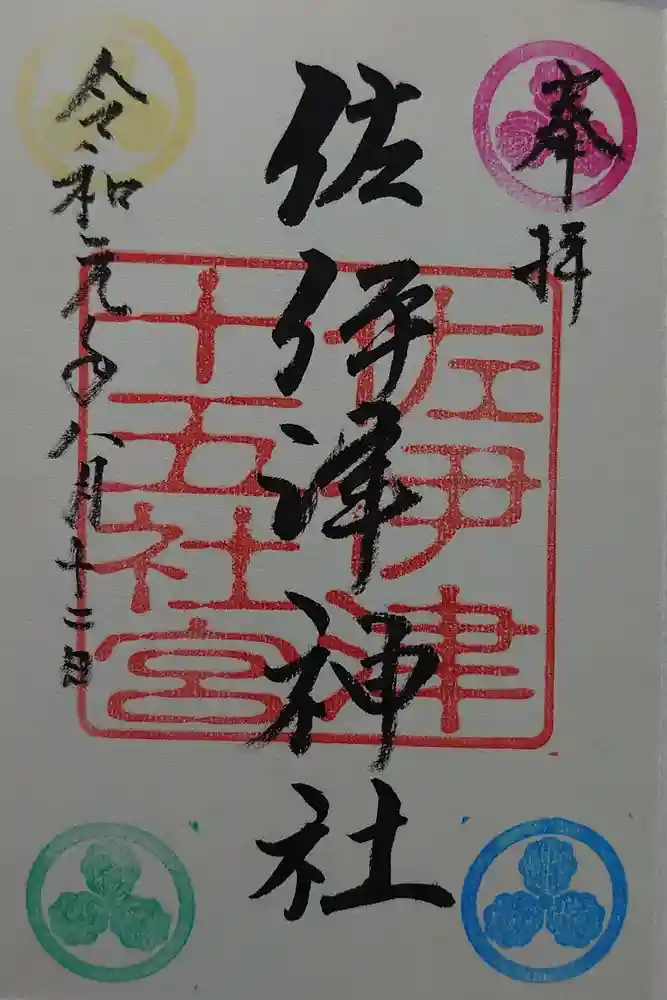 奉拝
佐伊津神社
佐伊津
十五社宮
令和元年八月十二日